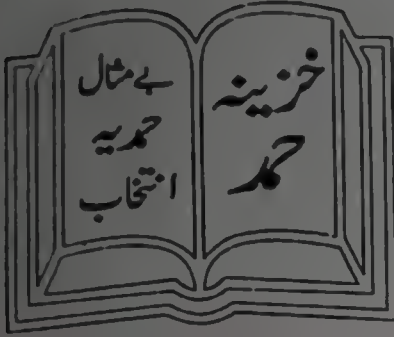 خزینہ
حمد
بے مثال
حمدیہ
انتخاب